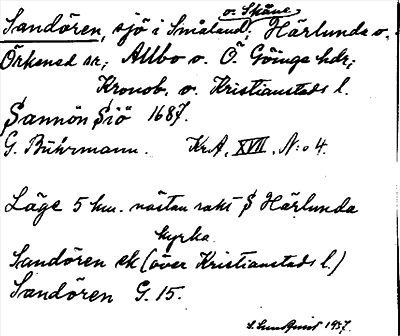 o. Skåne
Sandören, sjö i Småland; Härlunda o.
Örkened sr; Allbo o. Ö. Göinge hdr;
Kronob. o. Kristianstads l.
Sannön Siö 1687.
G. Buhrmann. Kr.A. XVII, N:o 4.
Läge 5 km. nästan rakt S Härlunda
kyrka.
Sandören ek (över Kristianstads l.)
Sandören G. 15.
1937.